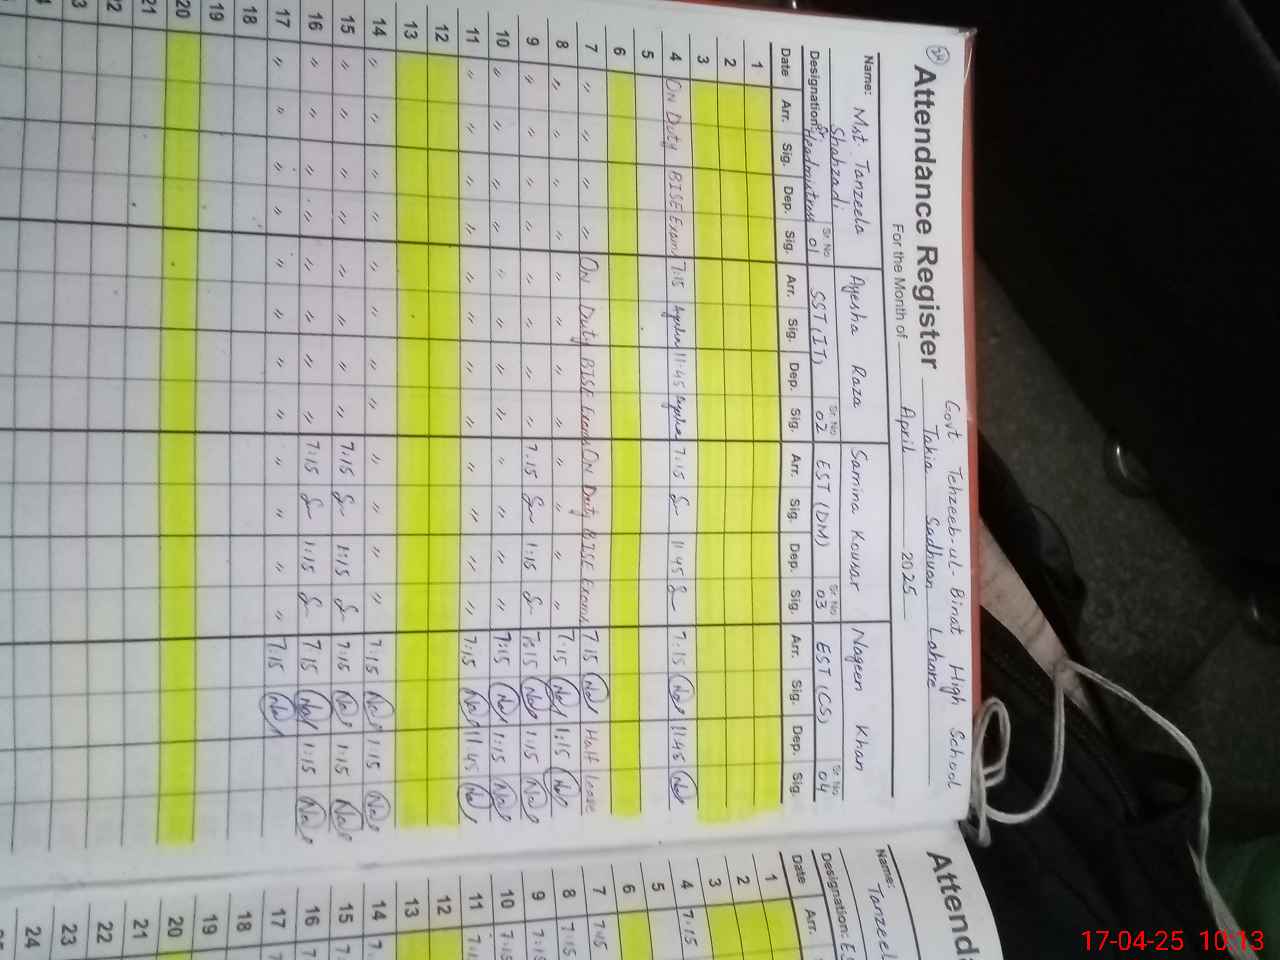 34 Attendance Register Govt Tehzeeb-ul-Binat High School
Takia Sadhuan Lahore
For the Month of April 2025
Name: Mst. Tanzeela Shahzadi Ayesha Raza Samina Kousar Naqeen Khan
Sr. No 01 Sr. No 02 Sr. No 03 Sr. No 04
Designation: Sr Headmistress SST (IT) EST (DM) EST (CS)
Date Arr. Sig. Dep. Sig. Arr. Sig. Dep. Sig. Arr. Sig. Dep. Sig. Arr. Sig. Dep. Sig.
1
2
3
4 ON Duty BISE Exam 7:15 Ayesha 11:45 Ayesha 7:15 11:45 7:15 11:45
5
6
7 " " " " ON Duty BISE Exams ON Duty BISE Exams 7:15 Half leave
8 " " " " " " " " " " " " 7:15 1:15
9 " " " " " " " " 7:15 1:15 7:15 1:15
10 " " " " " " " " " " " " 7:15 1:15
11 " " " " " " " " " " " " 7:15 11:45
12
13
14 " " " " " " " " " " " " 7:15 1:15
15 " " " " " " " " 7:15 1:15 7:15 1:15
16 " " " " " " " " 7:15 1:15 7:15 1:15
17 " " " " " " " " " " " " 7:15
18
19
20
21
Attend
Name: Tanzeel
Designation: ES
Date Arr.
1
2
3
4 7:15
5
6
7 7:15
8 7:15
9 7:15
10 7:15
11
12
13
14
15
16
17
18
19
20
21
22
23
24
17-04-25 10:13